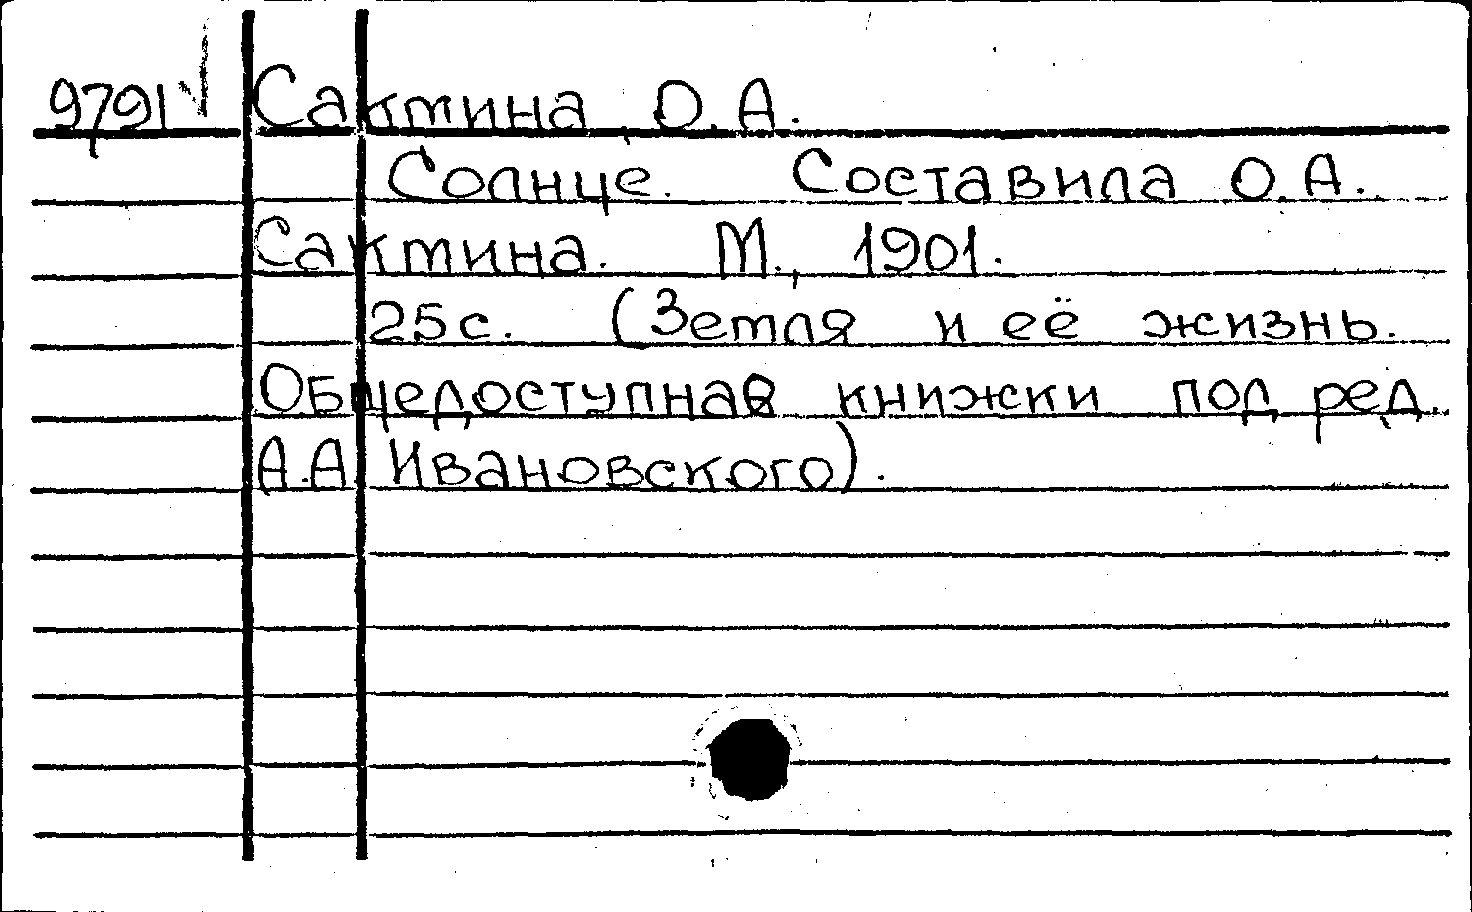 9791 Сактина О.А.
Солнце. Составила О.А.
Сактина. М., 1901.
25с. (Земля и её жизнь.
Общедоступная книжки под ред.
А.А. Ивановского).